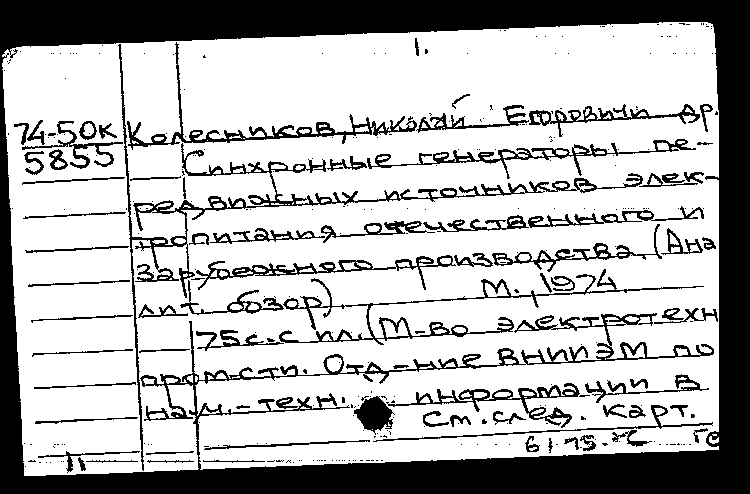 1.
74-50к Колесников, Николай Егорович и др.
5855 Синхронные генераторы пе-
редвижных источников элек-
тропитания отечественного и
зарубежного производства. (Ана
лит. обзор). М., 1974.
75 с. с ил. (М-во электротехн
пром-сти. Отд-ние ВНИИЭМ по
науч.-техн. информации в
См. след. карт.